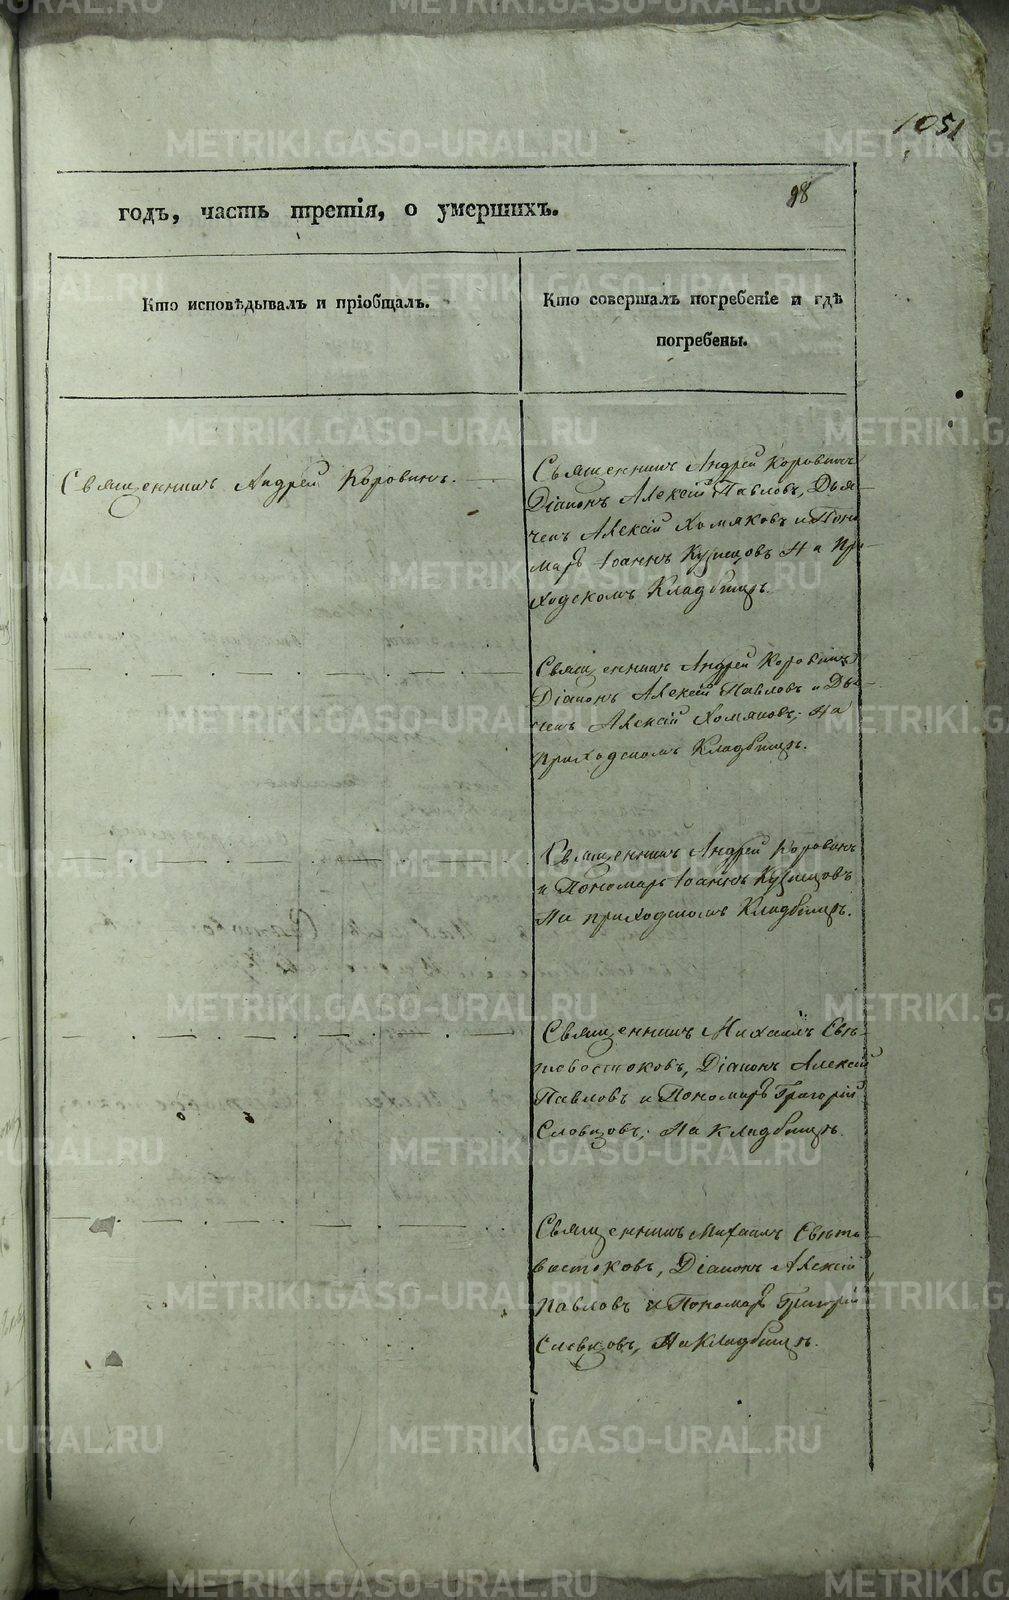 1051
98
годъ, часть третія, о умершихъ.
Кто исповѣдывалъ и пріобщалъ.
Кто совершалъ погребеніе и гдѣ
погребены.
Священникъ Андрей Коровинъ.
Священникъ Андрей Коровинъ
Діаконъ Алексій Павловъ, Дья-
чекъ Алексій Хомяковъ и Поно
марь Іоаннъ Кузнецовъ На При-
ходскомъ Кладбищѣ.
Священникъ Андрей Коровинъ
Діаконъ Алексій Павловъ и Дья-
чекъ Алексій Хомяковъ, На
приходскомъ Кладбищѣ.
Священникъ Андрей Коровинъ
и Пономарь Іоаннъ Кузнецовъ
На приходскомъ Кладбищѣ.
Священникъ Михаилъ Свѣ-
товостоковъ, Діаконъ Алексій
Павловъ и Пономарь Григорій
Словцовъ, На кладбищѣ.
Священникъ Михаилъ Свѣто-
востоковъ, Діаконъ Алексій
Павловъ и Пономарь Григорій
Словцовъ, На Кладбищѣ.
METRIKI.GASO-URAL.RU